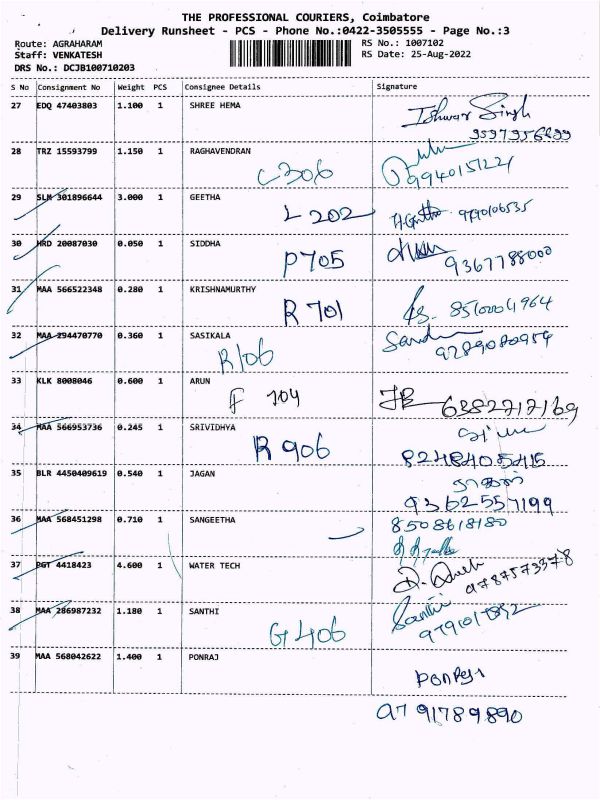 THE PROFESSIONAL COURIERS, Coimbatore
Delivery Runsheet - PCS - Phone No.:0422-3505555 - Page No.:3
Route: AGRAHARAM
RS No.: 1007102
Staff: VENKATESH
RS Date: 25-Aug-2022
DRS No.: DCJB100710203
S No Consignment No Weight PCS Consignee Details Signature
27 EDQ 47403803 1.100 1 SHREE HEMA Ishwar Singh
28 TRZ 15593799 1.150 1 RAGHAVENDRAN
C 306 9940151221
29 SLM 301896644 3.000 1 GEETHA
L 202 9790106535
30 HRD 20087030 0.050 1 SIDDHA
P705 9367788000
31 MAA 566522348 0.280 1 KRISHNAMURTHY
R 701 8510004964
32 MAA 294470770 0.360 1 SASIKALA
R106 9289080954
33 KLK 8008046 0.600 1 ARUN
F 104 6382717169
34 MAA 566953736 0.245 1 SRIVIDHYA
R 906 8248405415
35 BLR 4450409619 0.540 1 JAGAN
9362557199
36 MAA 568451298 0.710 1 SANGEETHA 8508618180
37 PGT 4418423 4.600 1 WATER TECH 9787573378
38 MAA 286987232 1.180 1 SANTHI Santhi
G 406 9791017892
39 MAA 568042622 1.400 1 PONRAJ
Ponraj
9791789890